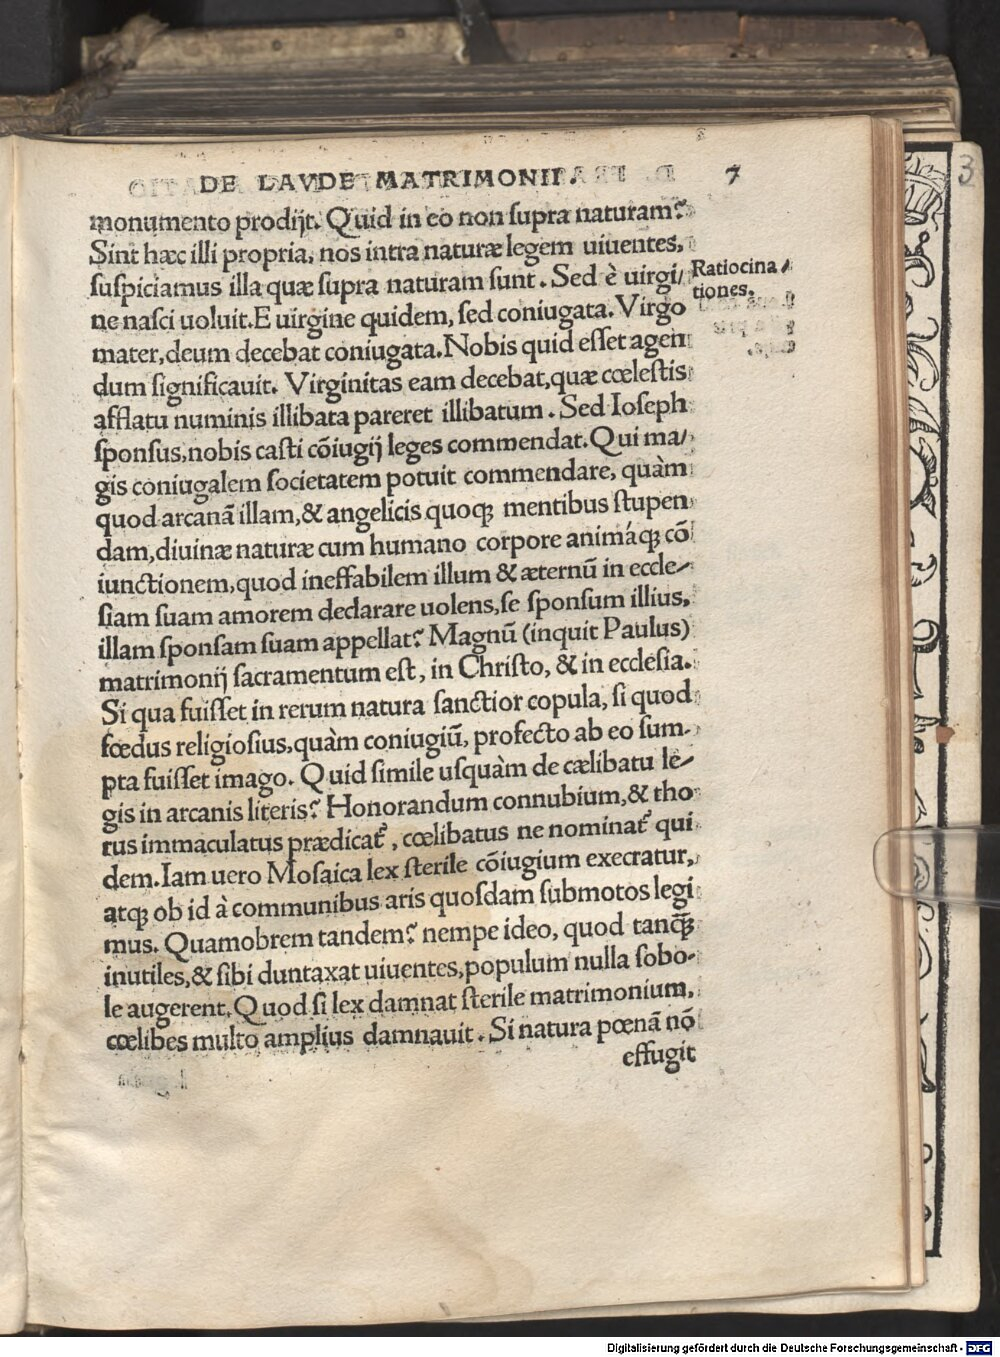 DE LAVDE MATRIMONII. 7
monumento prodijt. Quid in eo non supra naturam?
Sint hæc illi propria, nos intra naturæ legem uiuentes,
suspiciamus illa quæ supra naturam sunt. Sed è uirgi/
Ratiocina/
tiones.
ne nasci uoluit. E uirgine quidem, sed coniugata. Virgo
mater, deum decebat coniugata. Nobis quid esset agen
dum significauit. Virginitas eam decebat, quæ cœlestis
afflatu numinis illibata pareret illibatum. Sed Ioseph
sponsus, nobis casti cõiugij leges commendat. Qui ma/
gis coniugalem societatem potuit commendare, quàm
quod arcanã illam, & angelicis quoqꝫ mentibus stupen
dam, diuinæ naturæ cum humano corpore animáqꝫ cõ
iunctionem, quod ineffabilem illum & æternũ in eccle/
siam suam amorem declarare uolens, se sponsum illius,
illam sponsam suam appellat? Magnũ (inquit Paulus)
matrimonij sacramentum est, in Christo, & in ecclesia.
Si qua fuisset in rerum natura sanctior copula, si quod
fœdus religiosius, quàm coniugiũ, profecto ab eo sum-
pta fuisset imago. Quid simile usquàm de cælibatu le/
gis in arcanis literis? Honorandum connubium, & tho
rus immaculatus prædicat᷑, cœlibatus ne nominat᷑ qui
dem. Iam uero Mosaica lex sterile cõiugium execratur,
atqꝫ ob id à communibus aris quosdam submotos legi
mus. Quamobrem tandem? nempe ideo, quod tanq̃ꝫ
inutiles, & sibi duntaxat uiuentes, populum nulla sobo-
le augerent. Quod si lex damnat sterile matrimonium,
cœlibes multo amplius damnauit. Si natura pœnã nõ
effugit
3
Digitalisierung gefördert durch die Deutsche Forschungsgemeinschaft - DFG